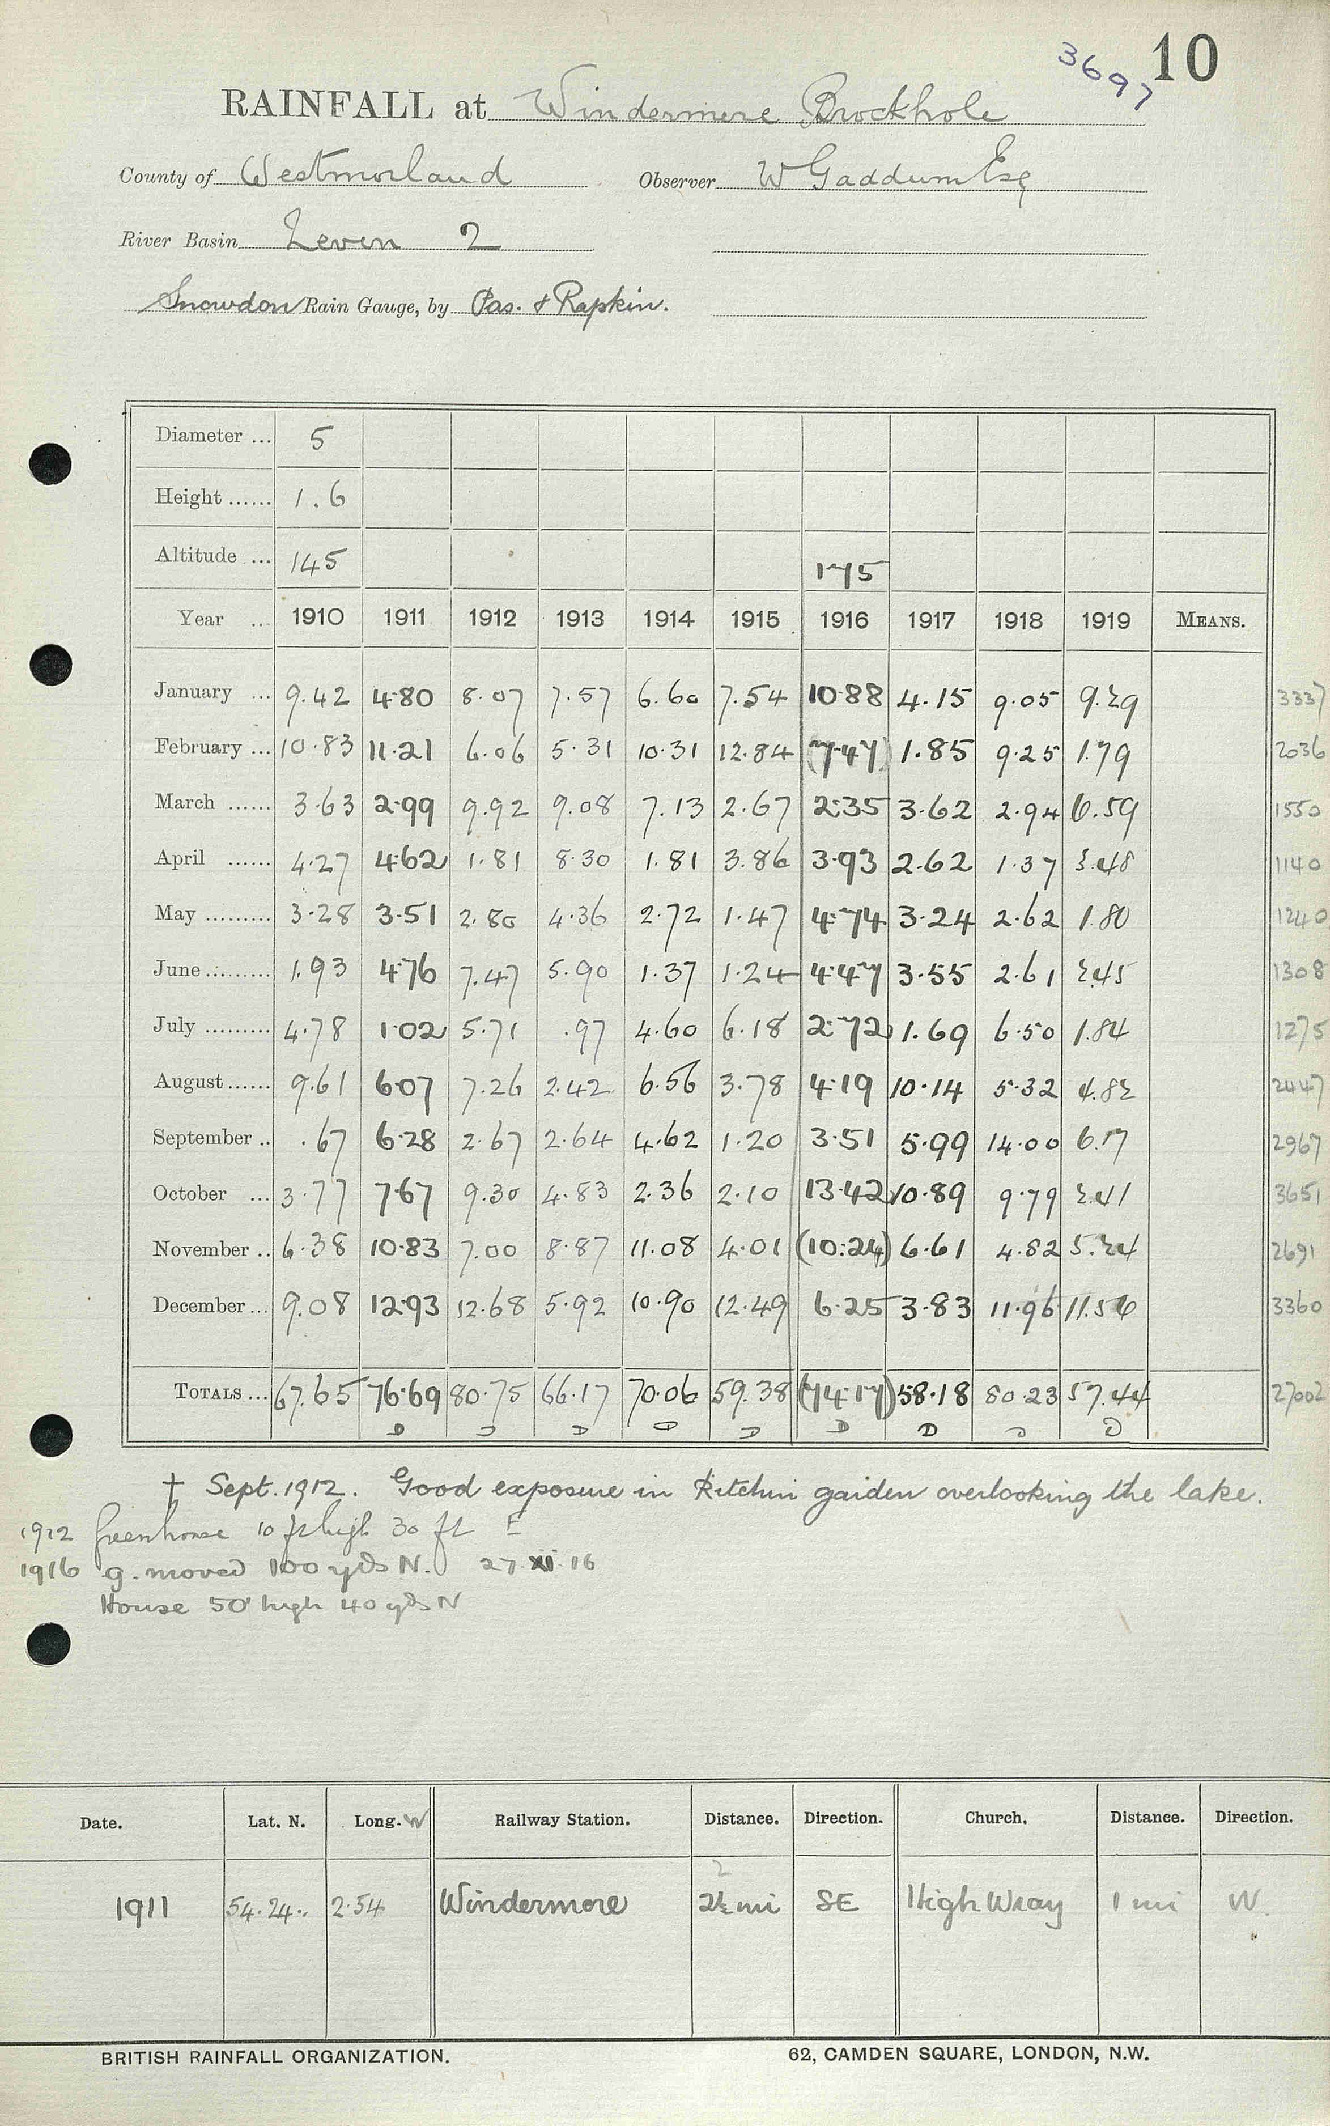 3697 10
RAINFALL at Windermere Brockhole
County of Westmorland Observer W Gaddum Esq
River Basin Leven 2
Snowdon Rain Gauge, by Pas. & Rapkin.
Diameter ... 5
Height ...... 1.6
Altitude ... 145 175
Year ... 1910 1911 1912 1913 1914 1915 1916 1917 1918 1919 MEANS.
January ... 9.42 4.80 8.07 7.57 6.60 7.54 10.88 4.15 9.05 9.29 3337
February ... 10.83 11.21 6.06 5.31 10.31 12.84 (7.47) 1.85 9.25 1.79 2036
March ...... 3.63 2.99 9.92 9.08 7.13 2.67 2.35 3.62 2.94 6.59 1550
April ...... 4.27 4.62 1.81 8.30 1.81 3.86 3.93 2.62 1.37 3.48 1140
May ......... 3.28 3.51 2.80 4.36 2.72 1.47 4.74 3.24 2.62 1.80 1240
June ......... 1.93 4.76 7.47 5.90 1.37 1.24 4.47 3.55 2.61 2.45 1308
July ......... 4.78 1.02 5.71 .97 4.60 6.18 2.72 1.69 6.50 1.84 1275
August ...... 9.61 6.07 7.26 2.42 6.56 3.78 4.19 10.14 5.32 4.82 2447
September .. .67 6.28 2.67 2.64 4.62 1.20 3.51 5.99 14.00 6.17 2967
October ... 3.77 7.67 9.30 4.83 2.36 2.10 13.42 10.89 9.79 2.41 3651
November .. 6.38 10.83 7.00 8.87 11.08 4.01 (10.24) 6.61 4.82 5.24 2691
December ... 9.08 12.93 12.68 5.92 10.90 12.49 6.25 3.83 11.96 11.56 3360
TOTALS ... 67.65 76.69 80.75 66.17 70.06 59.38 (74.17) 58.18 80.23 57.44 27002
D D D D D D D D D
† Sept. 1912. Good exposure in Kitchin garden overlooking the lake.
1912 Greenhouse 10 ft high 30 ft E
1916 g. moved 100 yds N. 27.XI.16
House 50' high 40 yds N
Date. Lat. N. Long. W Railway Station. Distance. Direction. Church. Distance. Direction.
2
1911 54.24 2.54 Windermere 2½ mi SE High Wray 1 mi W.
BRITISH RAINFALL ORGANIZATION. 62, CAMDEN SQUARE, LONDON, N.W.